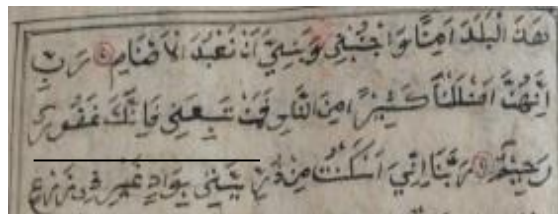 هَذَ الْبَلَدَ اٰمِنًا وَاجْنُبْنِى وَبَنِيَّ اَنْ نَعْبُدَ الْاَصْنَامَ رَبِّ
اِنَّهُنَّ اَضْلَلْنَ كَثِيْرًا مِنَ النَّاسِ فَمَنْ تَبِعَنِى فَاِنَّكَ غَفُوْرٌ
رَحِيْمٌ رَبَّنَا اِنِّيْ اَسْكَنْتُ مِنْ ذُرِّيَّتِيْ بِوَادٍ غَيْرِ ذِيْ زَرْعٍ